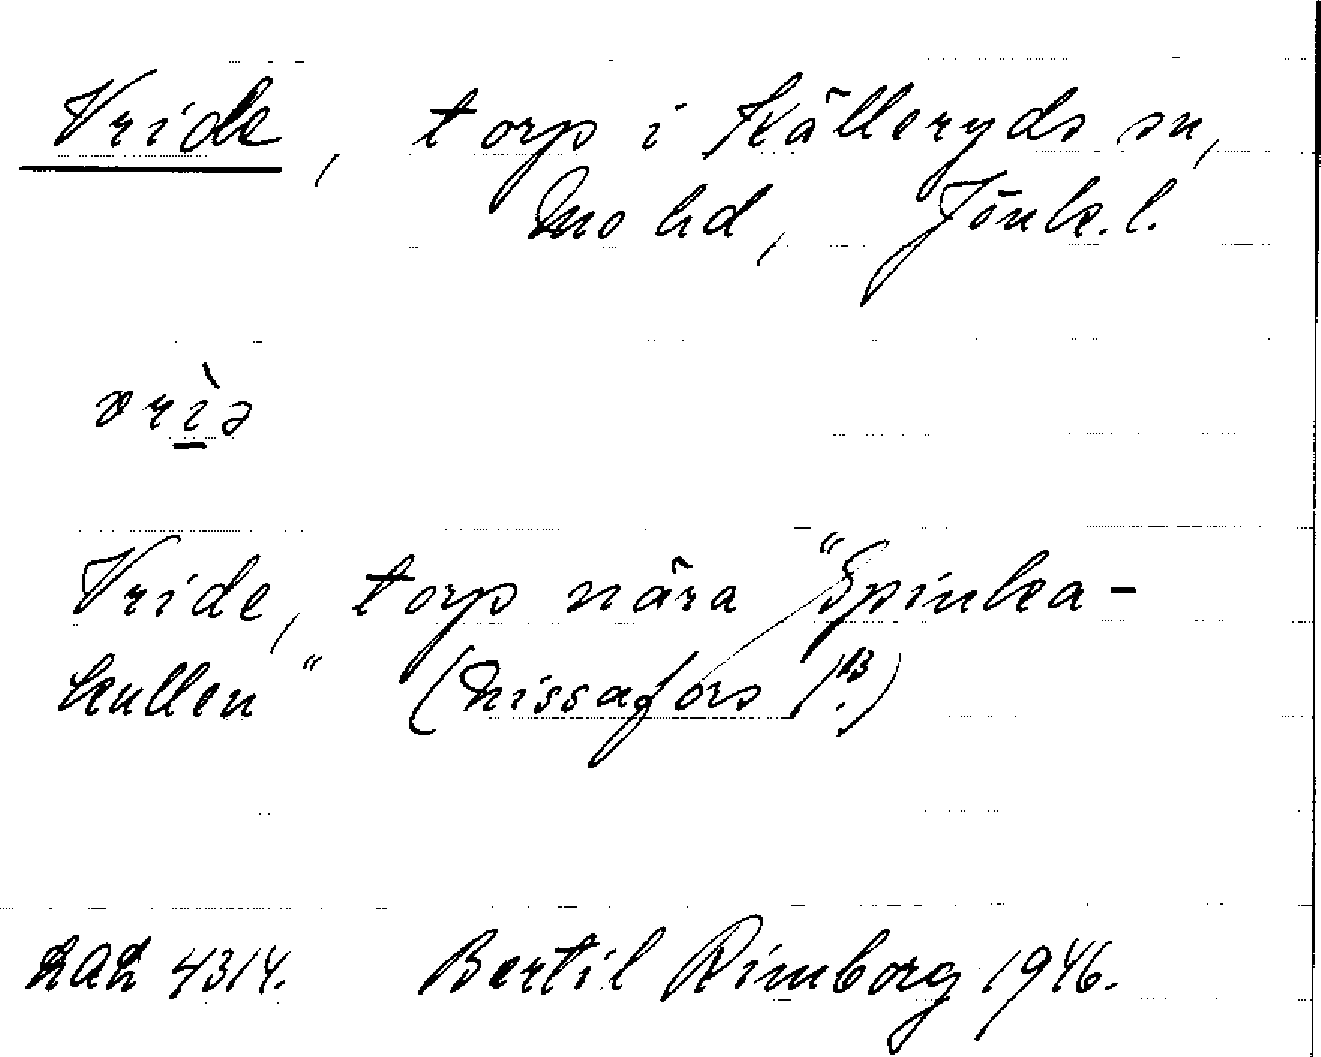 Vride, torp i Kålleryds sn,
Mo hd, Jönk.l.
vrìə
Vride, torp nära "Spinka-
kullen" (Nissafors
LAL 4314. Bertil Rimborg 1946.